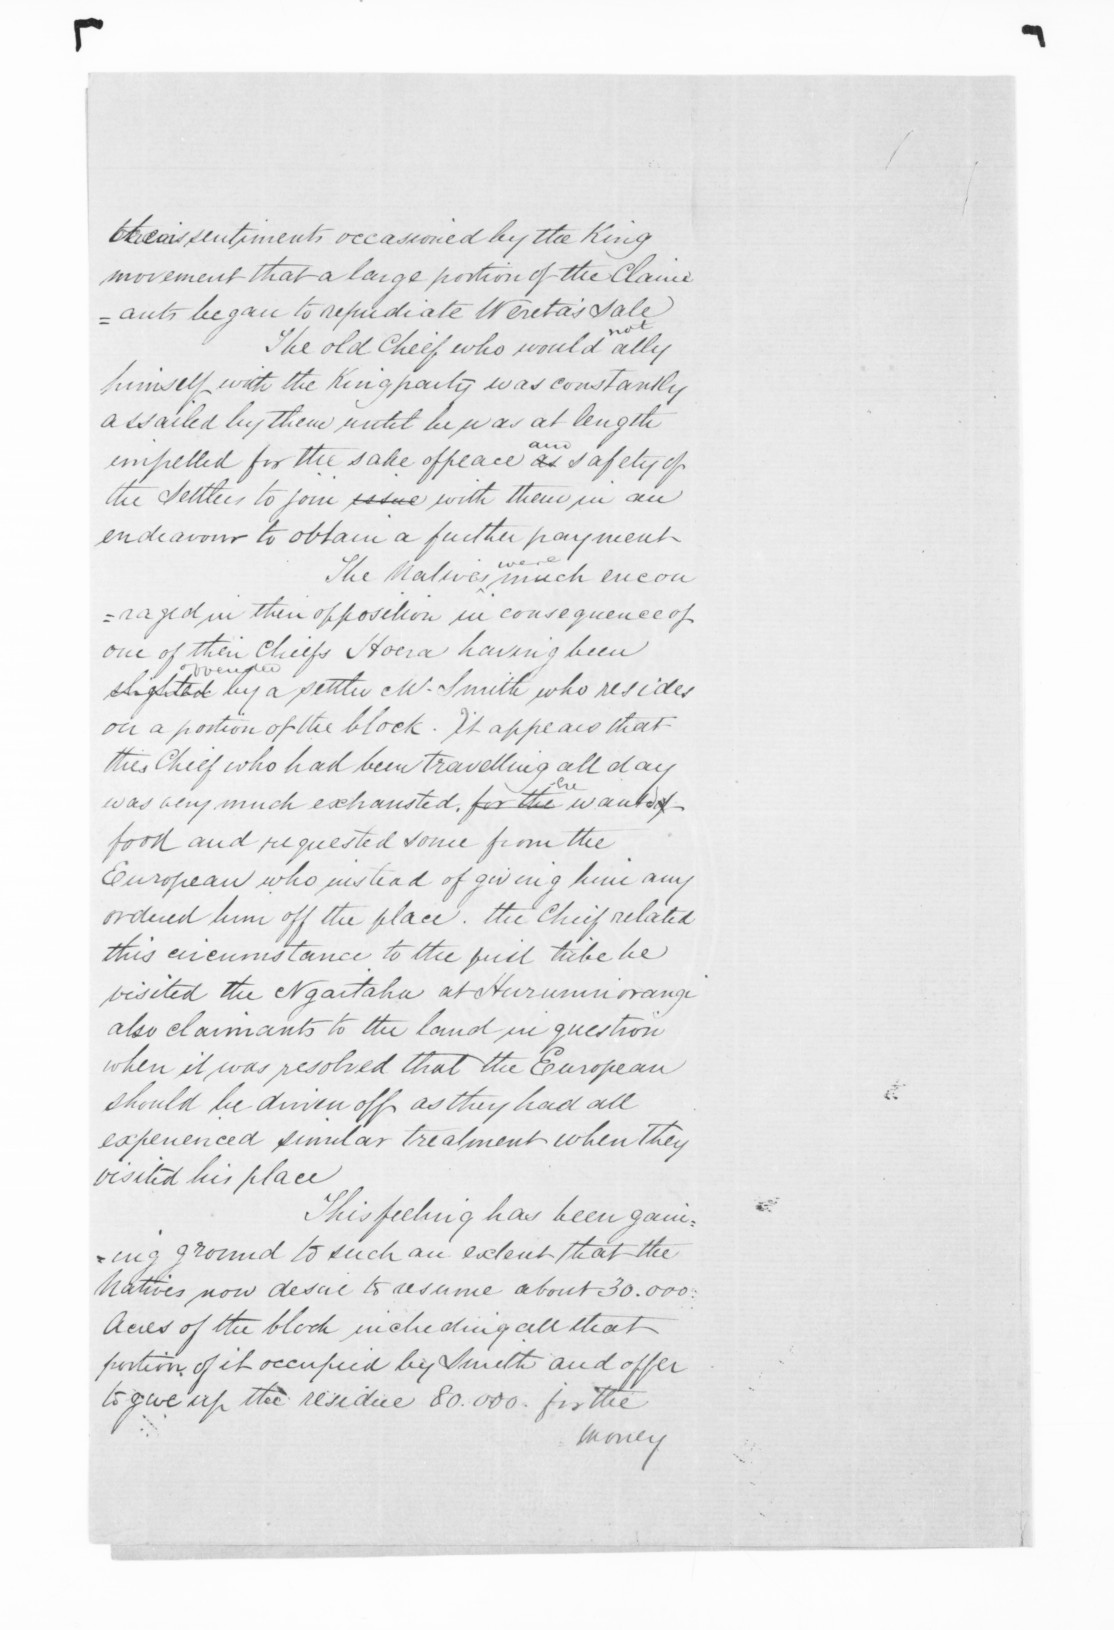 their sentiments occasioned by the King
movement that a large portion of the Claim
= ants began to repudiate Wereta's Sale
The old Chief who would not ally
himself with the King party was constantly
assailed by them until he was at length
impelled for the sake of peace as and safety of
the Settlers to join issue with them in an
endeavour to obtain a further payment
The Natives were much encou
= raged in their opposition in consequence of
one of their Chiefs Hoera having been
slighted offended by a settler Mr. Smith who resides
on a portion of the block. It appears that
this Chief who had been travelling all day
was very much exhausted, for the want of
food and requested some from the
European who instead of giving him any
ordered him off the place. the Chief related
this circumstance to the first tribe he
visited the Ngaitahu at Hurunuiorangi
also claimants to the land in question
when it was resolved that the European
should be driven off as they had all
experienced similar treatment when they
visited his place
This feeling has been gain=
=ing ground to such an extent that the
Natives now desire to resume about 30.000.
Acres of the block including all that
portion of it occupied by Smith and offer
to give up the residue 80.000. for the
money